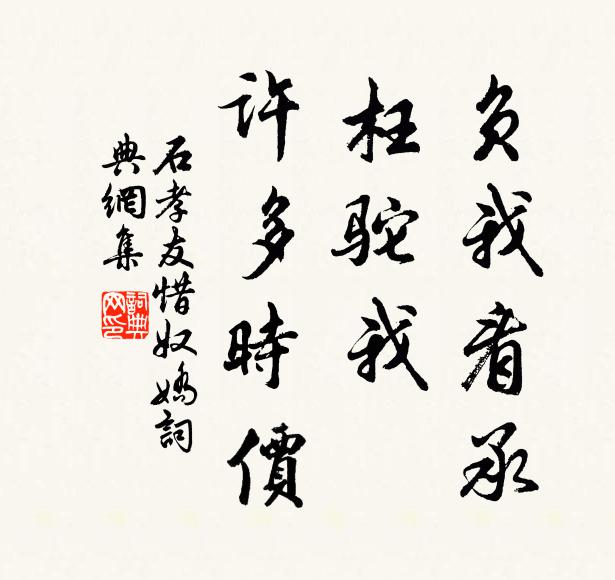 負我看承
枉駝我
許多時價
石孝友惜奴嬌詞
典網集
詞典
网印